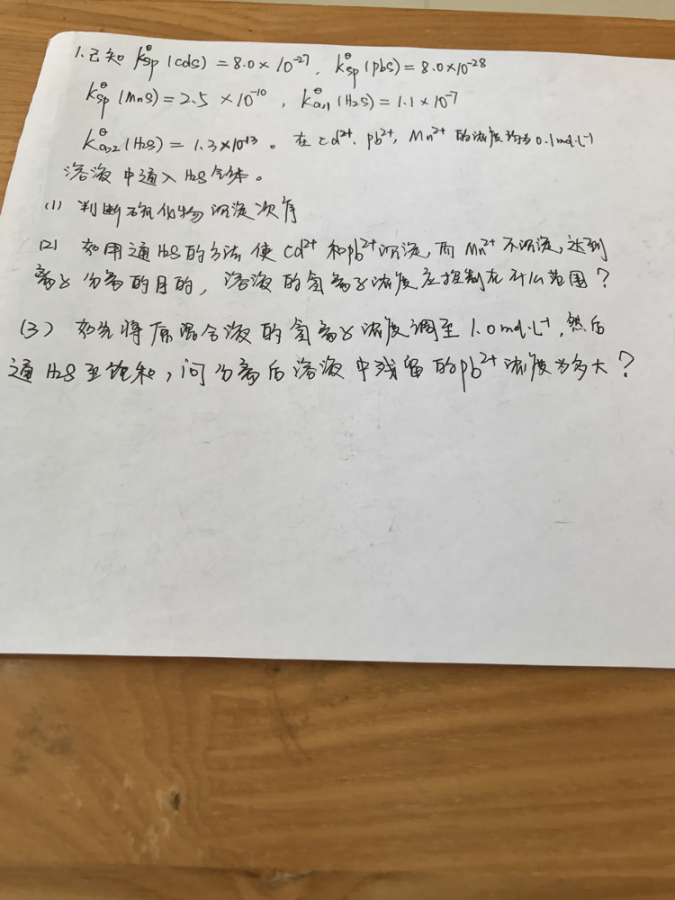 1.已知 Kθsp(cds)=8.0×10-27, Kθsp(pbs)=8.0×10-28
Kθsp(Mns)=2.5×10-10, Kθa,1(H2s)=1.1×10-7
Kθa,2(H2s)=1.3×10-13。在cd2+, pb2+, Mn2+的浓度均为0.1mol·L-1
溶液中通入H2s气体。
(1) 判断硫化物沉淀次序
(2) 如用通H2s的方法使Cd2+和pb2+沉淀,而Mn2+不沉淀,达到
离子分离的目的,溶液的氢离子浓度应控制在什么范围?
(3) 如先将原混合液的氢离子浓度调至1.0mol·L-1,然后
通H2s至饱和,问分离后溶液中残留的pb2+浓度为多大?